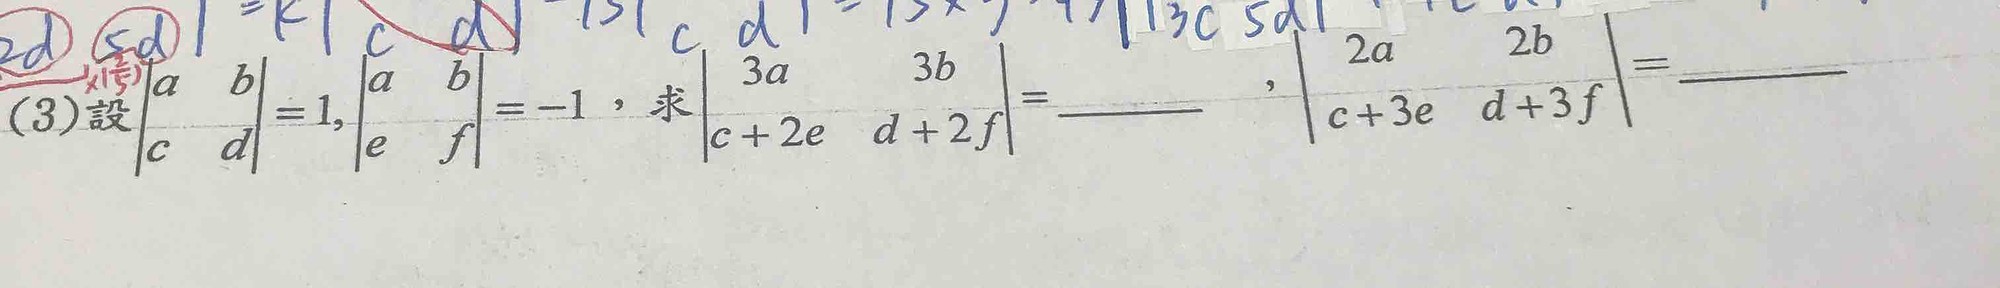 2d 5d | = k | c d | = 15 | c d | = 15 × | 3c 5d |
×(2/5)
(3)設|a b; c d|=1,|a b; e f|=−1,求|3a 3b; c+2e d+2f|=______,|2a 2b; c+3e d+3f|=______